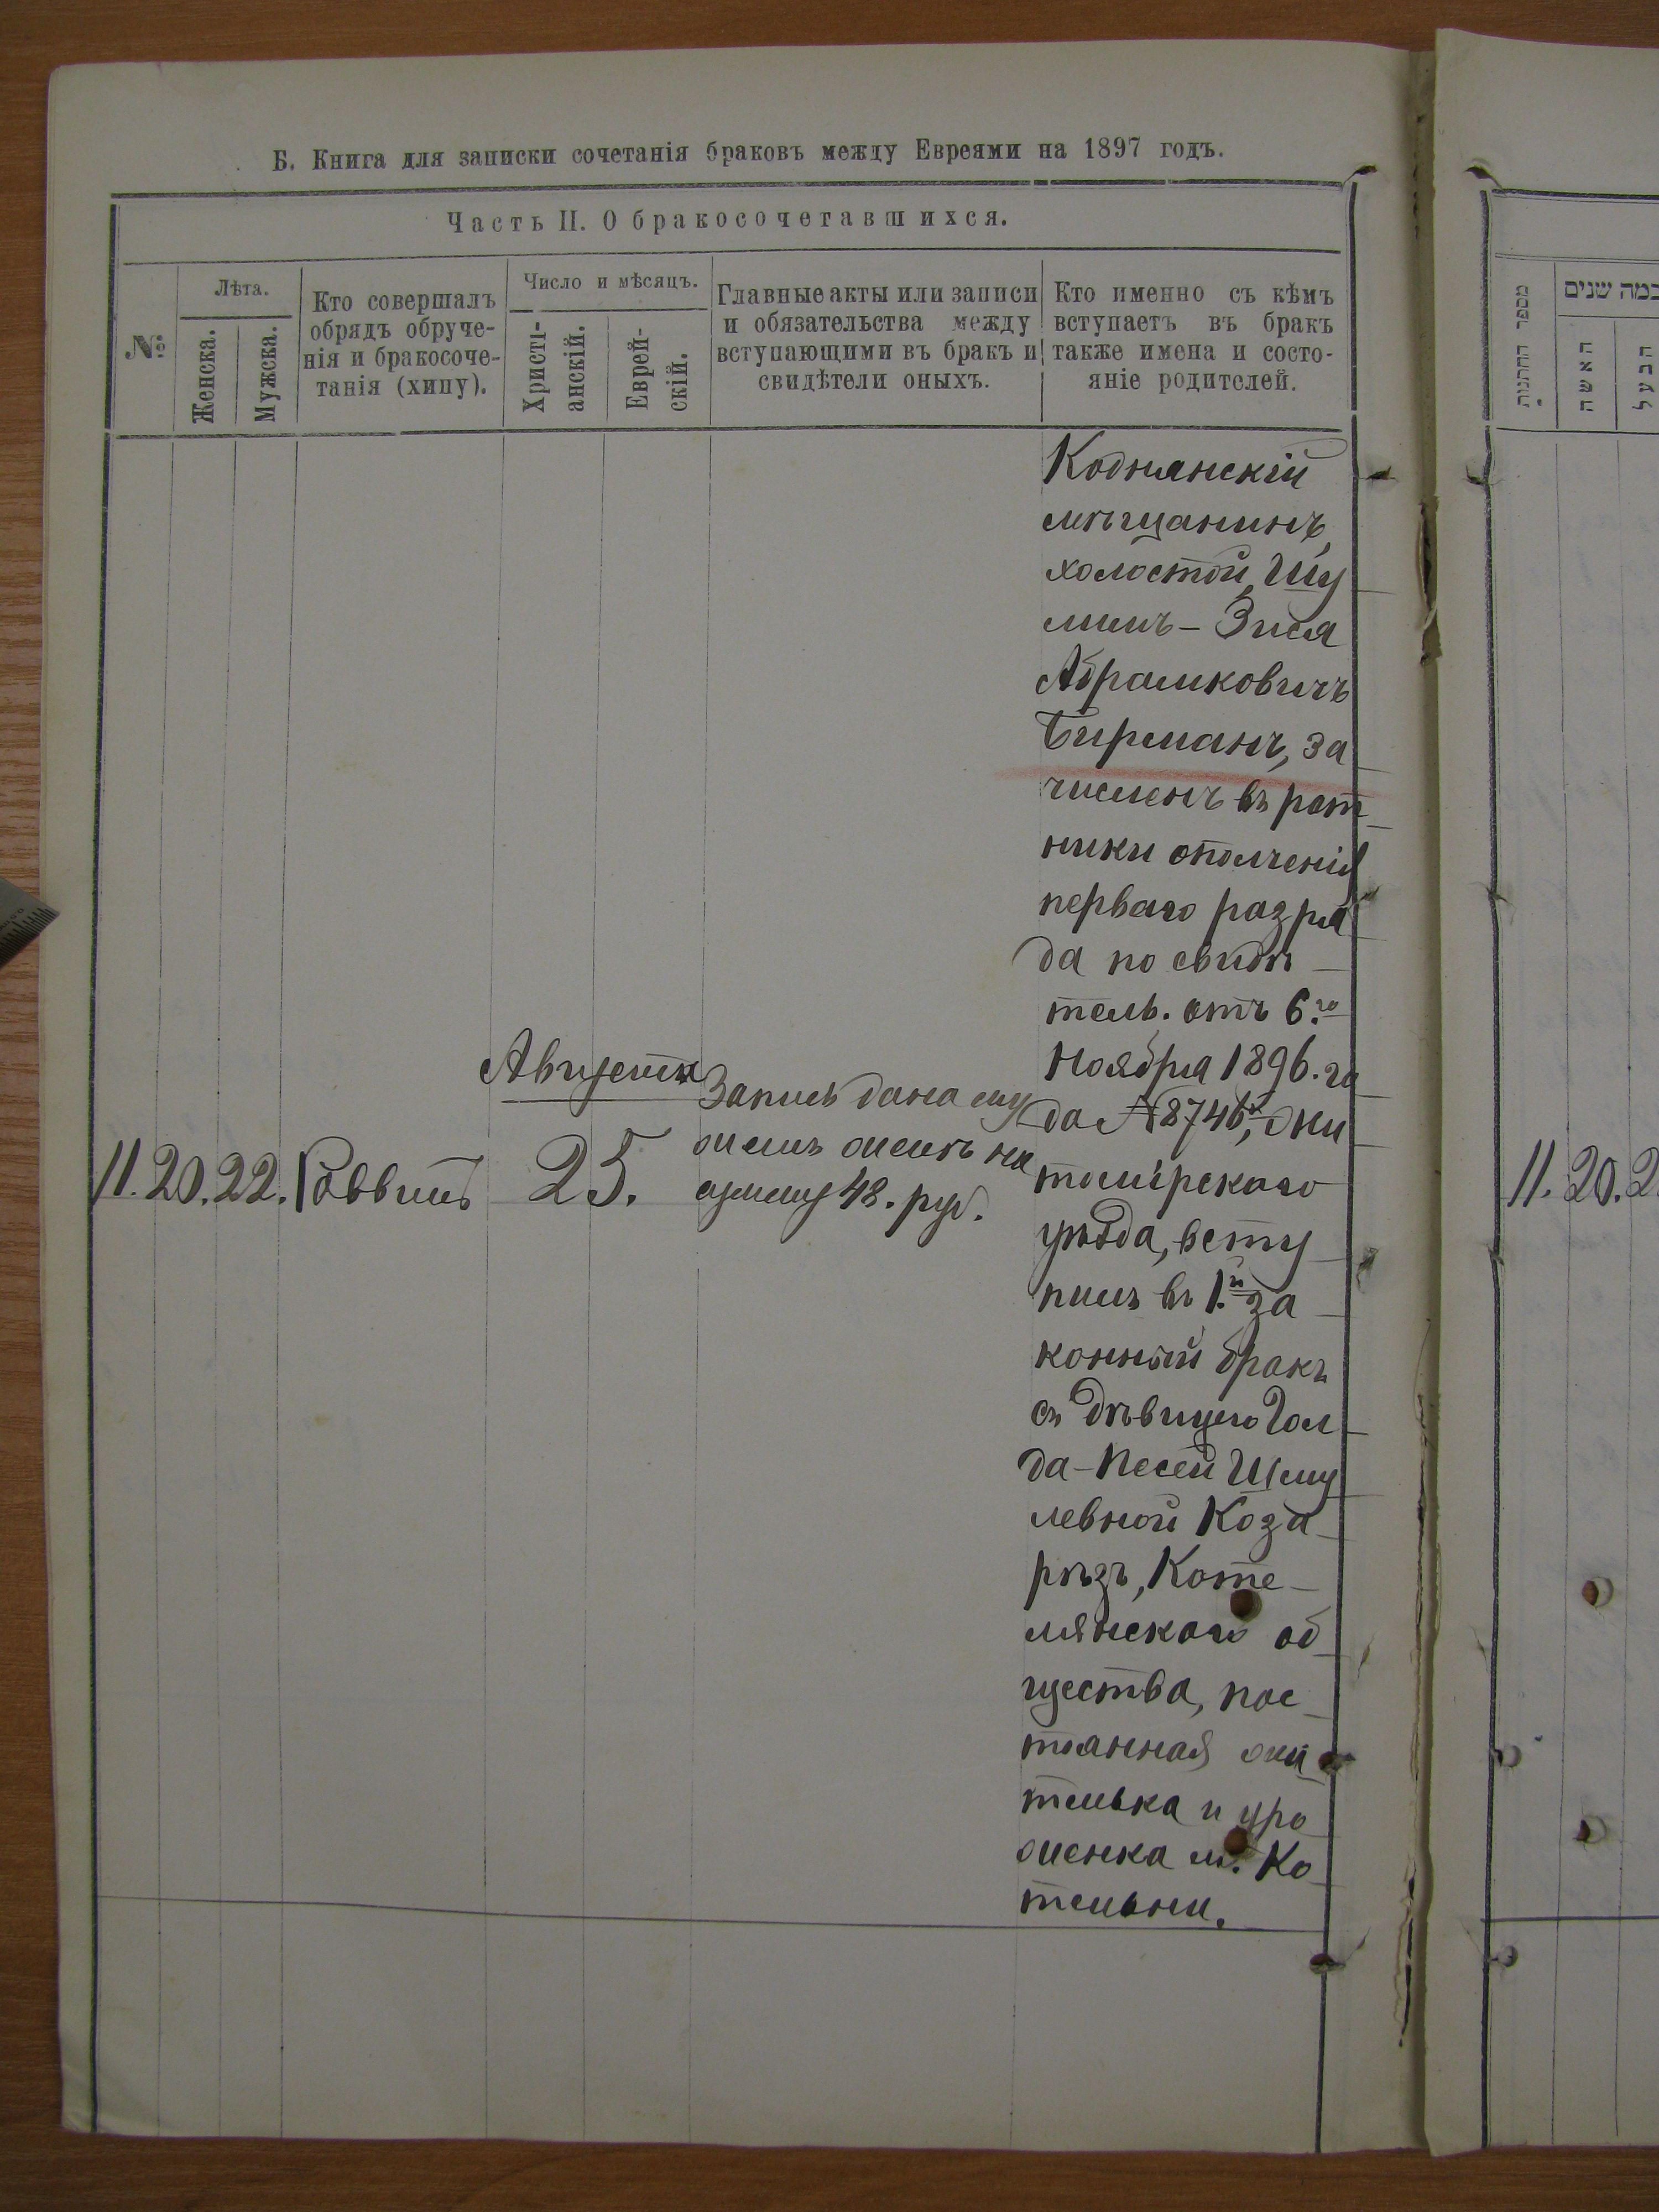 Б. Книга для записки сочетанія браковъ между Евреями на 1897 годъ.
Часть II. О бракосочетавшихся.
№
Лѣта.
Женска.
Мужска.
Кто совершалъ
обрядъ обруче-
нія и бракосоче-
танія (хипу).
Число и мѣсяцъ.
Христі-
анскій.
Еврей-
скій.
Главные акты или записи
и обязательства между
вступающими въ бракъ и
свидѣтели оныхъ.
Кто именно съ кѣмъ
вступаетъ въ бракъ
также имена и состо-
яніе родителей.
11. 20. 22. Раввинъ
Августа
25.
Запись дана му
жемъ женѣ на
сумму 48. руб.
Коднянскій
мѣщанинъ,
холостой, Шу
лимъ - Зися
Абрамковичъ
Бирманъ, за
численъ въ рат
ники ополченія
перваго разря
да по свидѣ
тель. отъ 6.го
Ноября 1896. го
да № 8746, Жи
томірскаго
уѣзда, всту
пилъ въ 1.й за
конный бракъ
съ дѣвицею Гол
да - Песей Шму
левной Коза
рѣзъ, Коте
лянскаго об
щества, пос
тоянная жи
телька и уро
женка м. Ко
тельни.
מספר החתונות
כמה שנים
האשה
הבעל
11. 20. 2